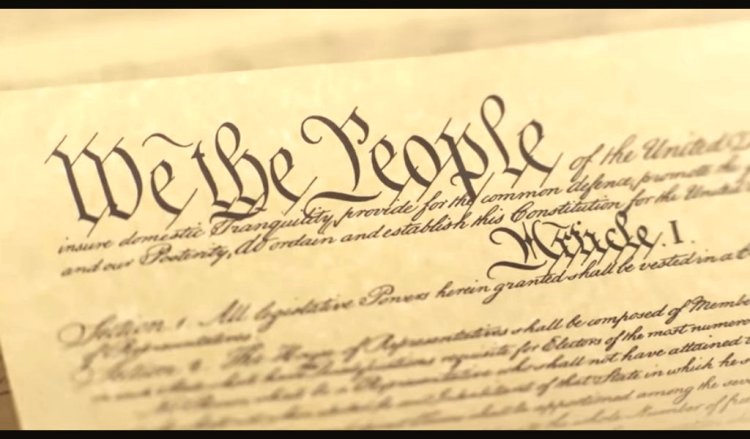 We the People of the United
insure domestic Tranquility, provide for the common defence, promote the
and our Posterity, do ordain and establish this Constitution for the United
Article. I.
Section. 1. All legislative Powers herein granted shall be vested in a
of Representatives.
Section. 2. The House of Representatives shall be composed of Membe
requisite for Electors of the most numero
who shall not have attained t
of that State in which he s
apportioned among the seve
Number of free